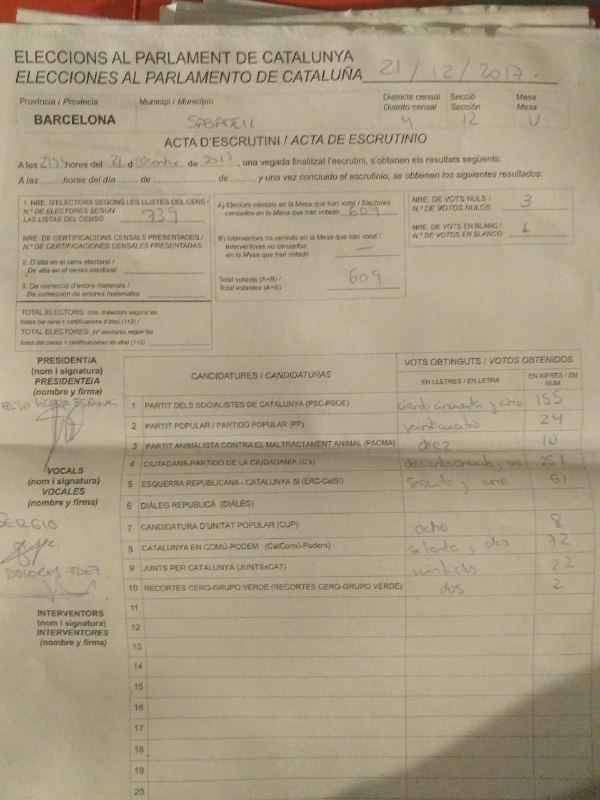 ELECCIONS AL PARLAMENT DE CATALUNYA
ELECCIONES AL PARLAMENTO DE CATALUÑA 21/12/2017.
Província / Provincia
Municipi / Municipio
Districte censal
Distrito censal
Secció
Sección
Mesa
Mesa
BARCELONA SABADELL 4 12 U
ACTA D'ESCRUTINI / ACTA DE ESCRUTINIO
A les hores del 21 d de 2017, una vegada finalitzat l'escrutini, s'obtenen els resultats següents:
A las hores del día de de , y una vez concluido el escrutinio, se obtienen los siguientes resultados:
1. NRE. D'ELECTORS SEGONS LES LLISTES DEL CENS /
N.º DE ELECTORES SEGÚN
LAS LISTAS DEL CENSO 739
NRE. DE CERTIFICACIONS CENSALS PRESENTADES /
N.º DE CERTIFICACIONES CENSALES PRESENTADAS
2. D'alta en el cens electoral /
De alta en el censo electoral:
3. De correcció d'errors materials /
De corrección de errores materiales:
TOTAL ELECTORS: (nre. d'electors segons les
llistes del cens + certificacions d'alta) (1+2) /
TOTAL ELECTORES: (n.º electores según las
listas del censo + certificaciones de alta) (1+2)
A) Electors censats en la Mesa que han votat / Electores
censados en la Mesa que han votado 609
B) Interventors no censats en la Mesa que han votat /
Interventores no censados
en la Mesa que han votado —
Total votants (A+B) /
Total votantes (A+B) 609
NRE. DE VOTS NULS /
N.º DE VOTOS NULOS 3
NRE. DE VOTS EN BLANC /
N.º DE VOTOS EN BLANCO 1
PRESIDENT/A
(nom i signatura)
PRESIDENTE/A
(nombre y firma)
VOCALS
(nom i signatura)
VOCALES
(nombre y firma)
SERGIO
DOLORES FDEZ.
INTERVENTORS
(nom i signatura)
INTERVENTORES
(nombre y firma)
CANDIDATURES / CANDIDATURAS
VOTS OBTINGUTS / VOTOS OBTENIDOS
EN LLETRES / EN LETRA
EN XIFRES / EN NÚM
1 PARTIT DELS SOCIALISTES DE CATALUNYA (PSC-PSOE) ciento cincuenta y cinco 155
2 PARTIT POPULAR / PARTIDO POPULAR (PP) veinticuatro 24
3 PARTIT ANIMALISTA CONTRA EL MALTRACTAMENT ANIMAL (PACMA) diez 10
4 CIUTADANS-PARTIDO DE LA CIUDADANÍA (C's) 251
5 ESQUERRA REPUBLICANA - CATALUNYA SÍ (ERC-CatSí) sesenta y uno 61
6 DIÀLEG REPUBLICÀ (DIÀLEG)
7 CANDIDATURA D'UNITAT POPULAR (CUP) ocho 8
8 CATALUNYA EN COMÚ-PODEM (CatComú-Podem) setenta y dos 72
9 JUNTS PER CATALUNYA (JUNTSxCAT) veintidos 22
10 RECORTES CERO-GRUPO VERDE (RECORTES CERO-GRUPO VERDE) dos 2
11
12
13
14
15
16
17
18
19
20